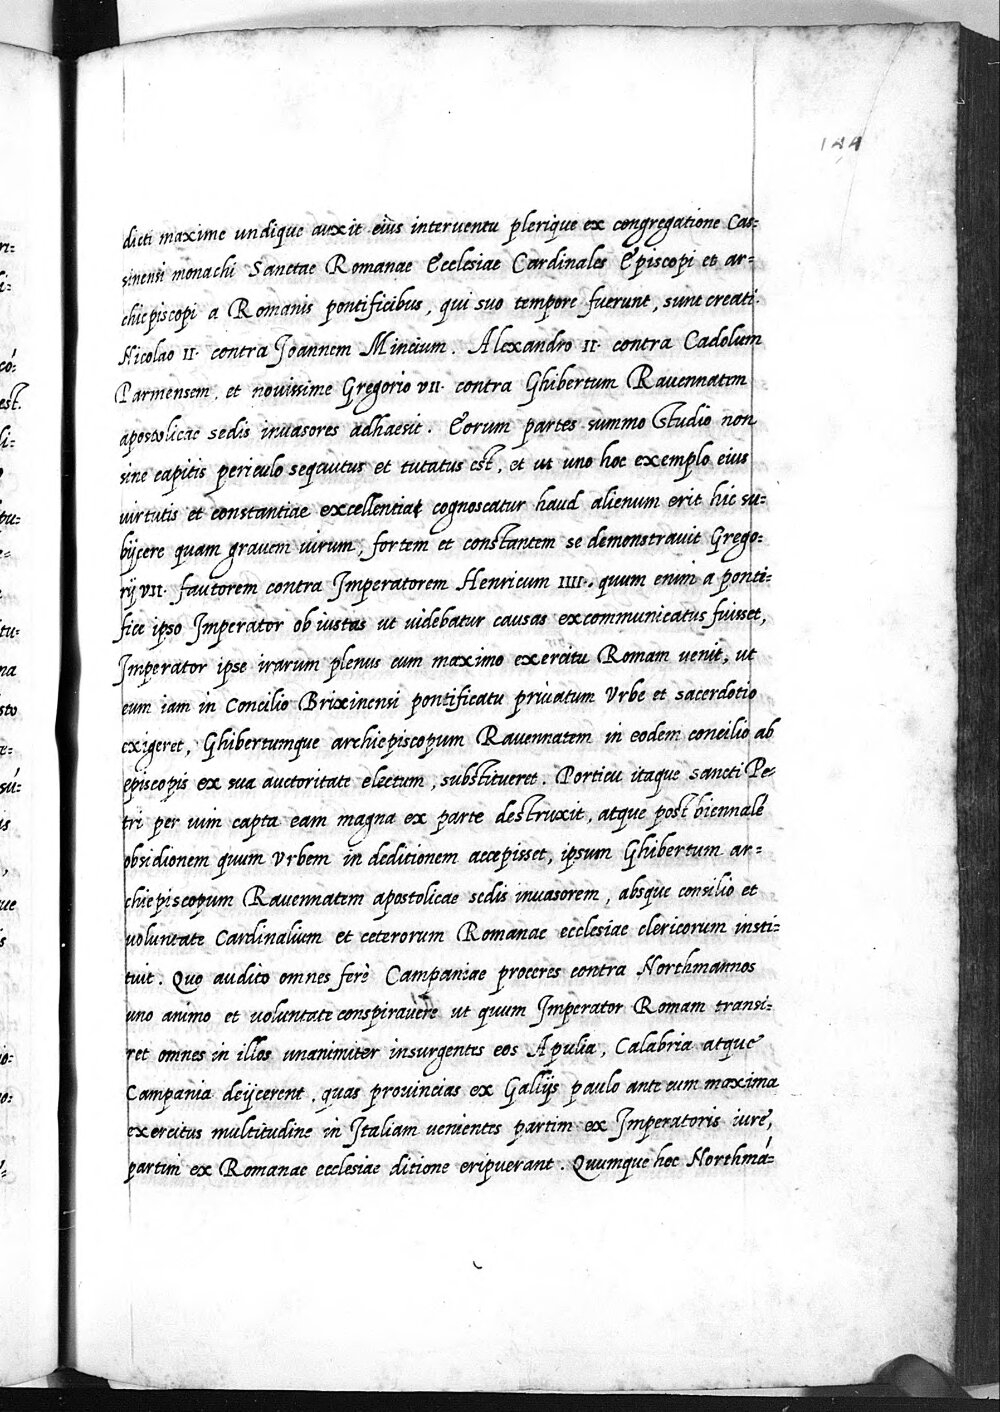 144
dicti maxime undique auxit eius interventu plerique ex congregatione Cas=
sinensi monachi Sanctae Romanae Ecclesiae Cardinales Episcopi et ar=
chiepiscopi a Romanis pontificibus, qui suo tempore fuerunt, sunt creati.
Nicolao II. contra Joannem Mincium. Alexandro II. contra Cadolum
Parmensem, et novissime Gregorio VII. contra Ghibertum Ravennaten
apostolicae sedis invasores adhaesit. Eorum partes summo studio non
sine capitis periculo sequutus et tutatus est, et ut uno hoc exemplo eius
uirtutis et constantiae excellentia cognoscatur haud alienum erit hic su=
bijcere quam gravem uirum, fortem et constantem se demonstravit Grego=
rij VII. fautorem contra Imperatorem Henricum IIII. quum enim a ponti=
fice ipso Imperator ob iustas ut uidebatur causas excommunicatus fuisset,
Imperator ipse irarum plenus cum maximo exercitu Romam uenit, ut
eum iam in Concilio Brixinensi pontificatu priuatum Vrbe et sacerdotio
exigeret, Ghibertumque archiepiscopum Ravennatem in eodem concilio ab
episcopis ex sua auctoritate electum, substitueret. Porticu itaque sancti Pe=
tri per uim capta eam magna ex parte destruxit, atque post biennalē
obsidionem quum Vrbem in deditionem accepisset, ipsum Ghibertum ar=
chiepiscopum Ravennatem apostolicae sedis invasorem, absque consilio et
uoluntate Cardinalium et ceterorum Romanae ecclesiae clericorum insti=
tuit. Quo audito omnes ferè Campaniae proceres contra Northmannos
uno animo et uoluntate conspiravere ut quum Imperator Romam transi=
ret omnes in illos unanimiter insurgentes eos Apulia, Calabria atque
Campania deijcerent, quas prouincias ex Gallijs paulo ante cum maxima
exercitus multitudine in Italiam uenientes partim ex Imperatoris iure,
partim ex Romanae ecclesiae ditione eripuerant. Quumque hoc Northmá=